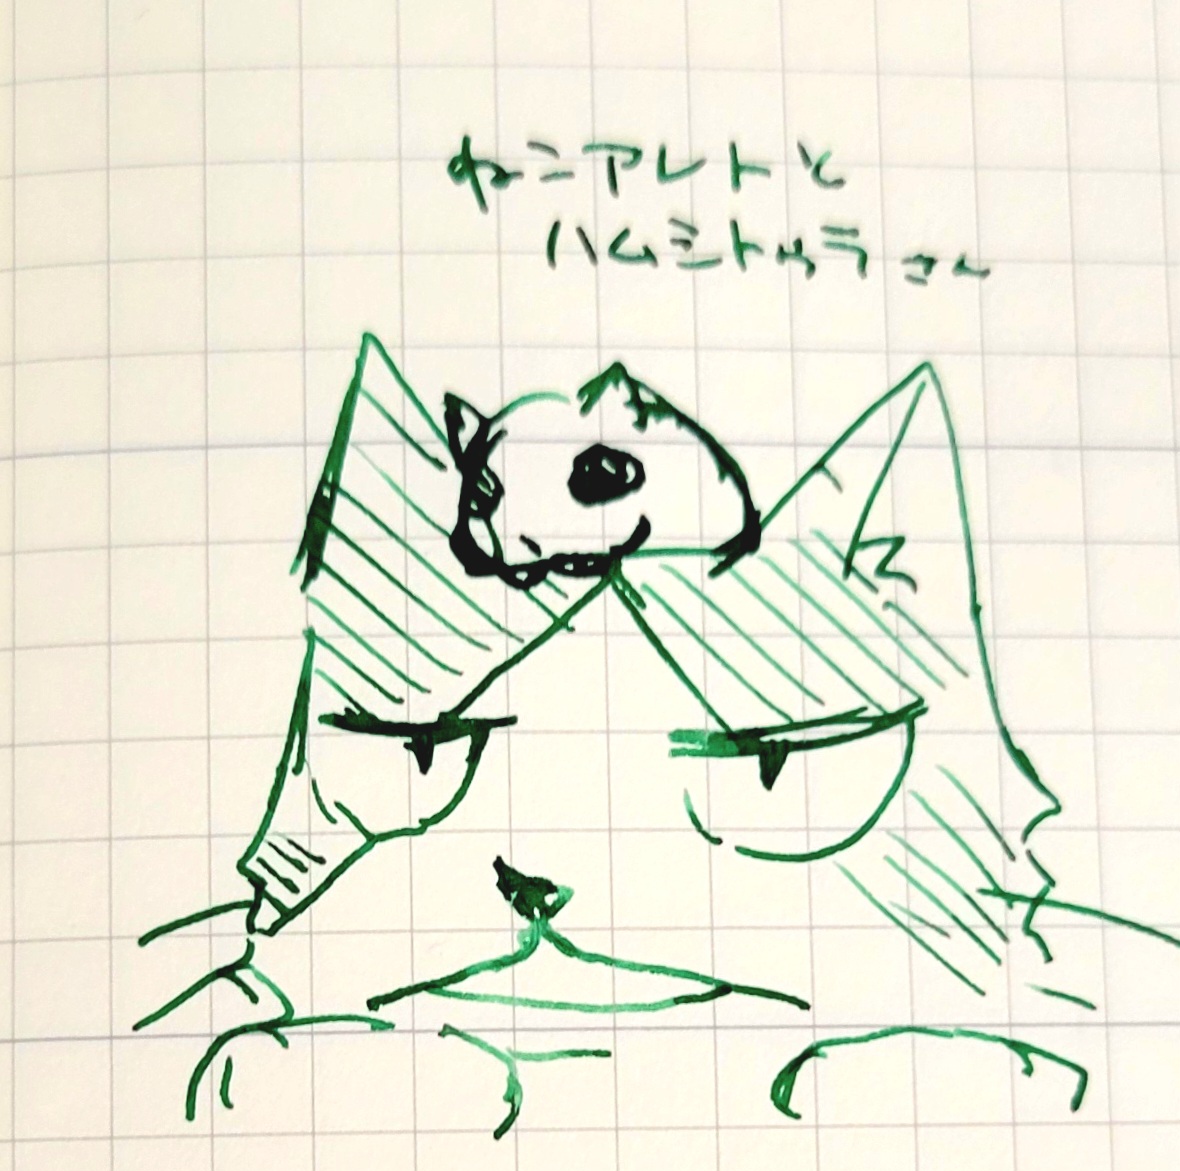 ねこアレトと
ハムミトゥラさん